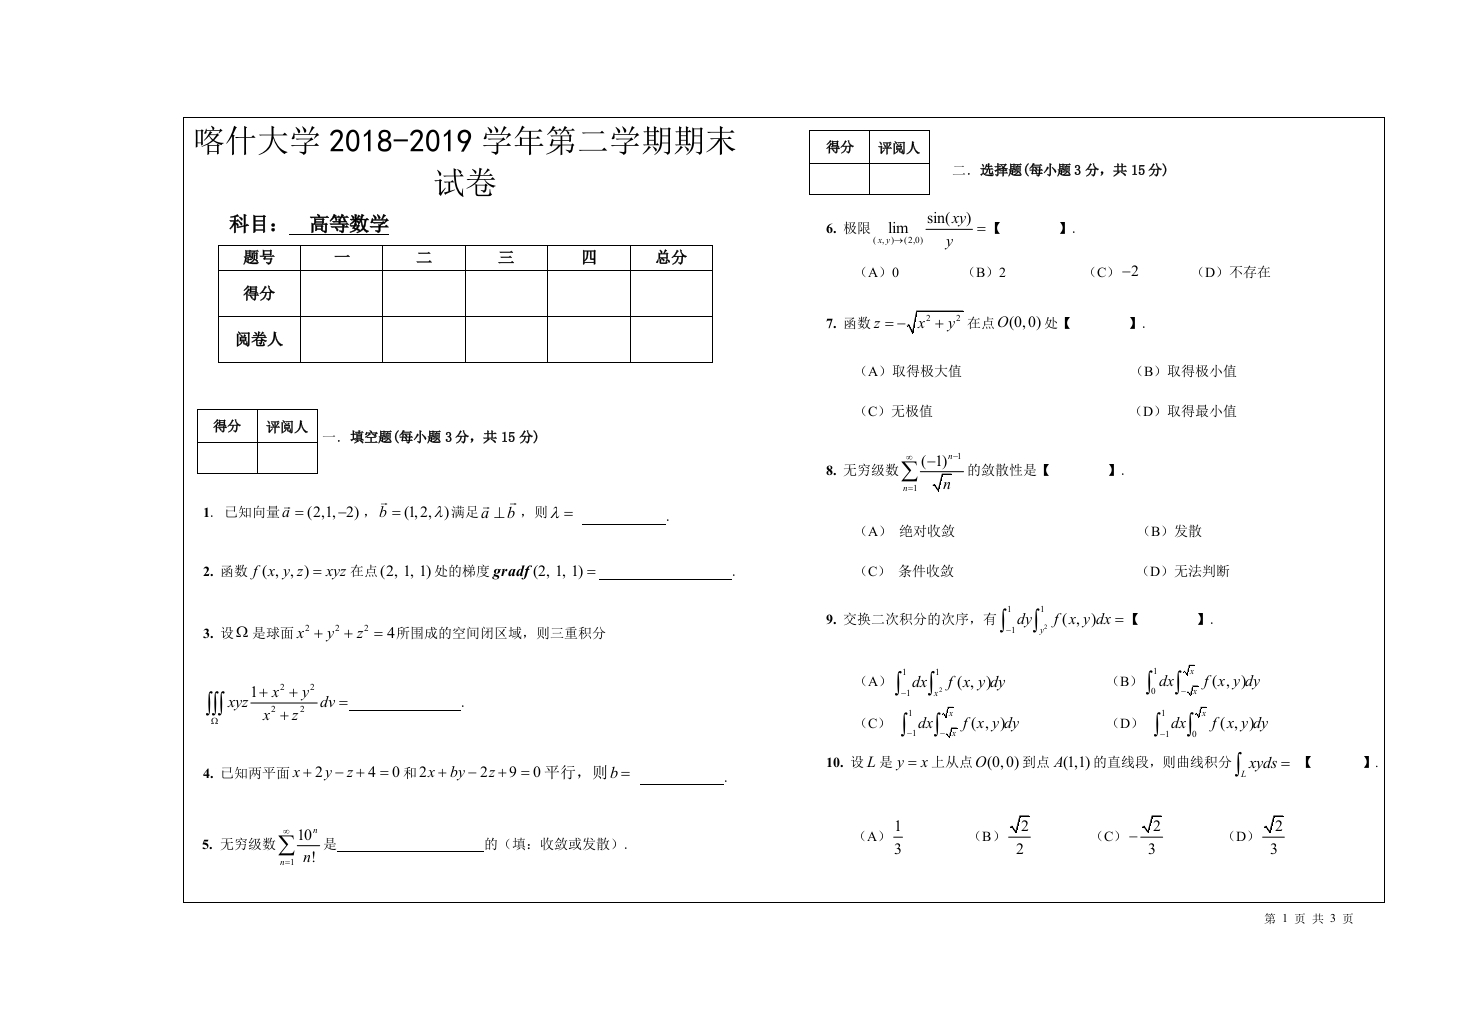 喀什大学 2018-2019 学年第二学期期末
试卷
科目： 高等数学
题号 一 二 三 四 总分
得分
阅卷人
得分 评阅人
一．填空题(每小题 3 分，共 15 分)
1. 已知向量 $\vec{a}=(2,1,-2)$，$\vec{b}=(1,2,\lambda)$ 满足 $\vec{a}\perp\vec{b}$，则 $\lambda=$ ____.
2. 函数 $f(x,y,z)=xyz$ 在点 $(2, 1, 1)$ 处的梯度 gradf $(2, 1, 1)=$ ____.
3. 设 $\Omega$ 是球面 $x^2+y^2+z^2=4$ 所围成的空间闭区域，则三重积分
$\iiint_{\Omega} xyz\frac{1+x^2+y^2}{x^2+z^2}dv=$ ____.
4. 已知两平面 $x+2y-z+4=0$ 和 $2x+by-2z+9=0$ 平行，则 $b=$ ____.
5. 无穷级数 $\sum_{n=1}^{\infty}\frac{10^n}{n!}$ 是____的（填：收敛或发散）.
得分 评阅人
二．选择题(每小题 3 分，共 15 分)
6. 极限 $\lim_{(x,y)\to(2,0)}\frac{\sin(xy)}{y}=$【 】.
（A）0 （B）2 （C）$-2$ （D）不存在
7. 函数 $z=-\sqrt{x^2+y^2}$ 在点 $O(0,0)$ 处【 】.
（A）取得极大值 （B）取得极小值
（C）无极值 （D）取得最小值
8. 无穷级数 $\sum_{n=1}^{\infty}\frac{(-1)^{n-1}}{\sqrt{n}}$ 的敛散性是【 】.
（A） 绝对收敛 （B）发散
（C） 条件收敛 （D）无法判断
9. 交换二次积分的次序，有 $\int_{-1}^{1}dy\int_{y^2}^{1}f(x,y)dx=$【 】.
（A）$\int_{-1}^{1}dx\int_{x^2}^{1}f(x,y)dy$ （B）$\int_{0}^{1}dx\int_{-\sqrt{x}}^{\sqrt{x}}f(x,y)dy$
（C） $\int_{-1}^{1}dx\int_{-\sqrt{x}}^{\sqrt{x}}f(x,y)dy$ （D） $\int_{-1}^{1}dx\int_{0}^{\sqrt{x}}f(x,y)dy$
10. 设 $L$ 是 $y=x$ 上从点 $O(0,0)$ 到点 $A(1,1)$ 的直线段，则曲线积分 $\int_{L}xyds=$ 【 】.
（A）$\frac{1}{3}$ （B）$\frac{\sqrt{2}}{2}$ （C）$-\frac{\sqrt{2}}{3}$ （D）$\frac{\sqrt{2}}{3}$
第 1 页 共 3 页